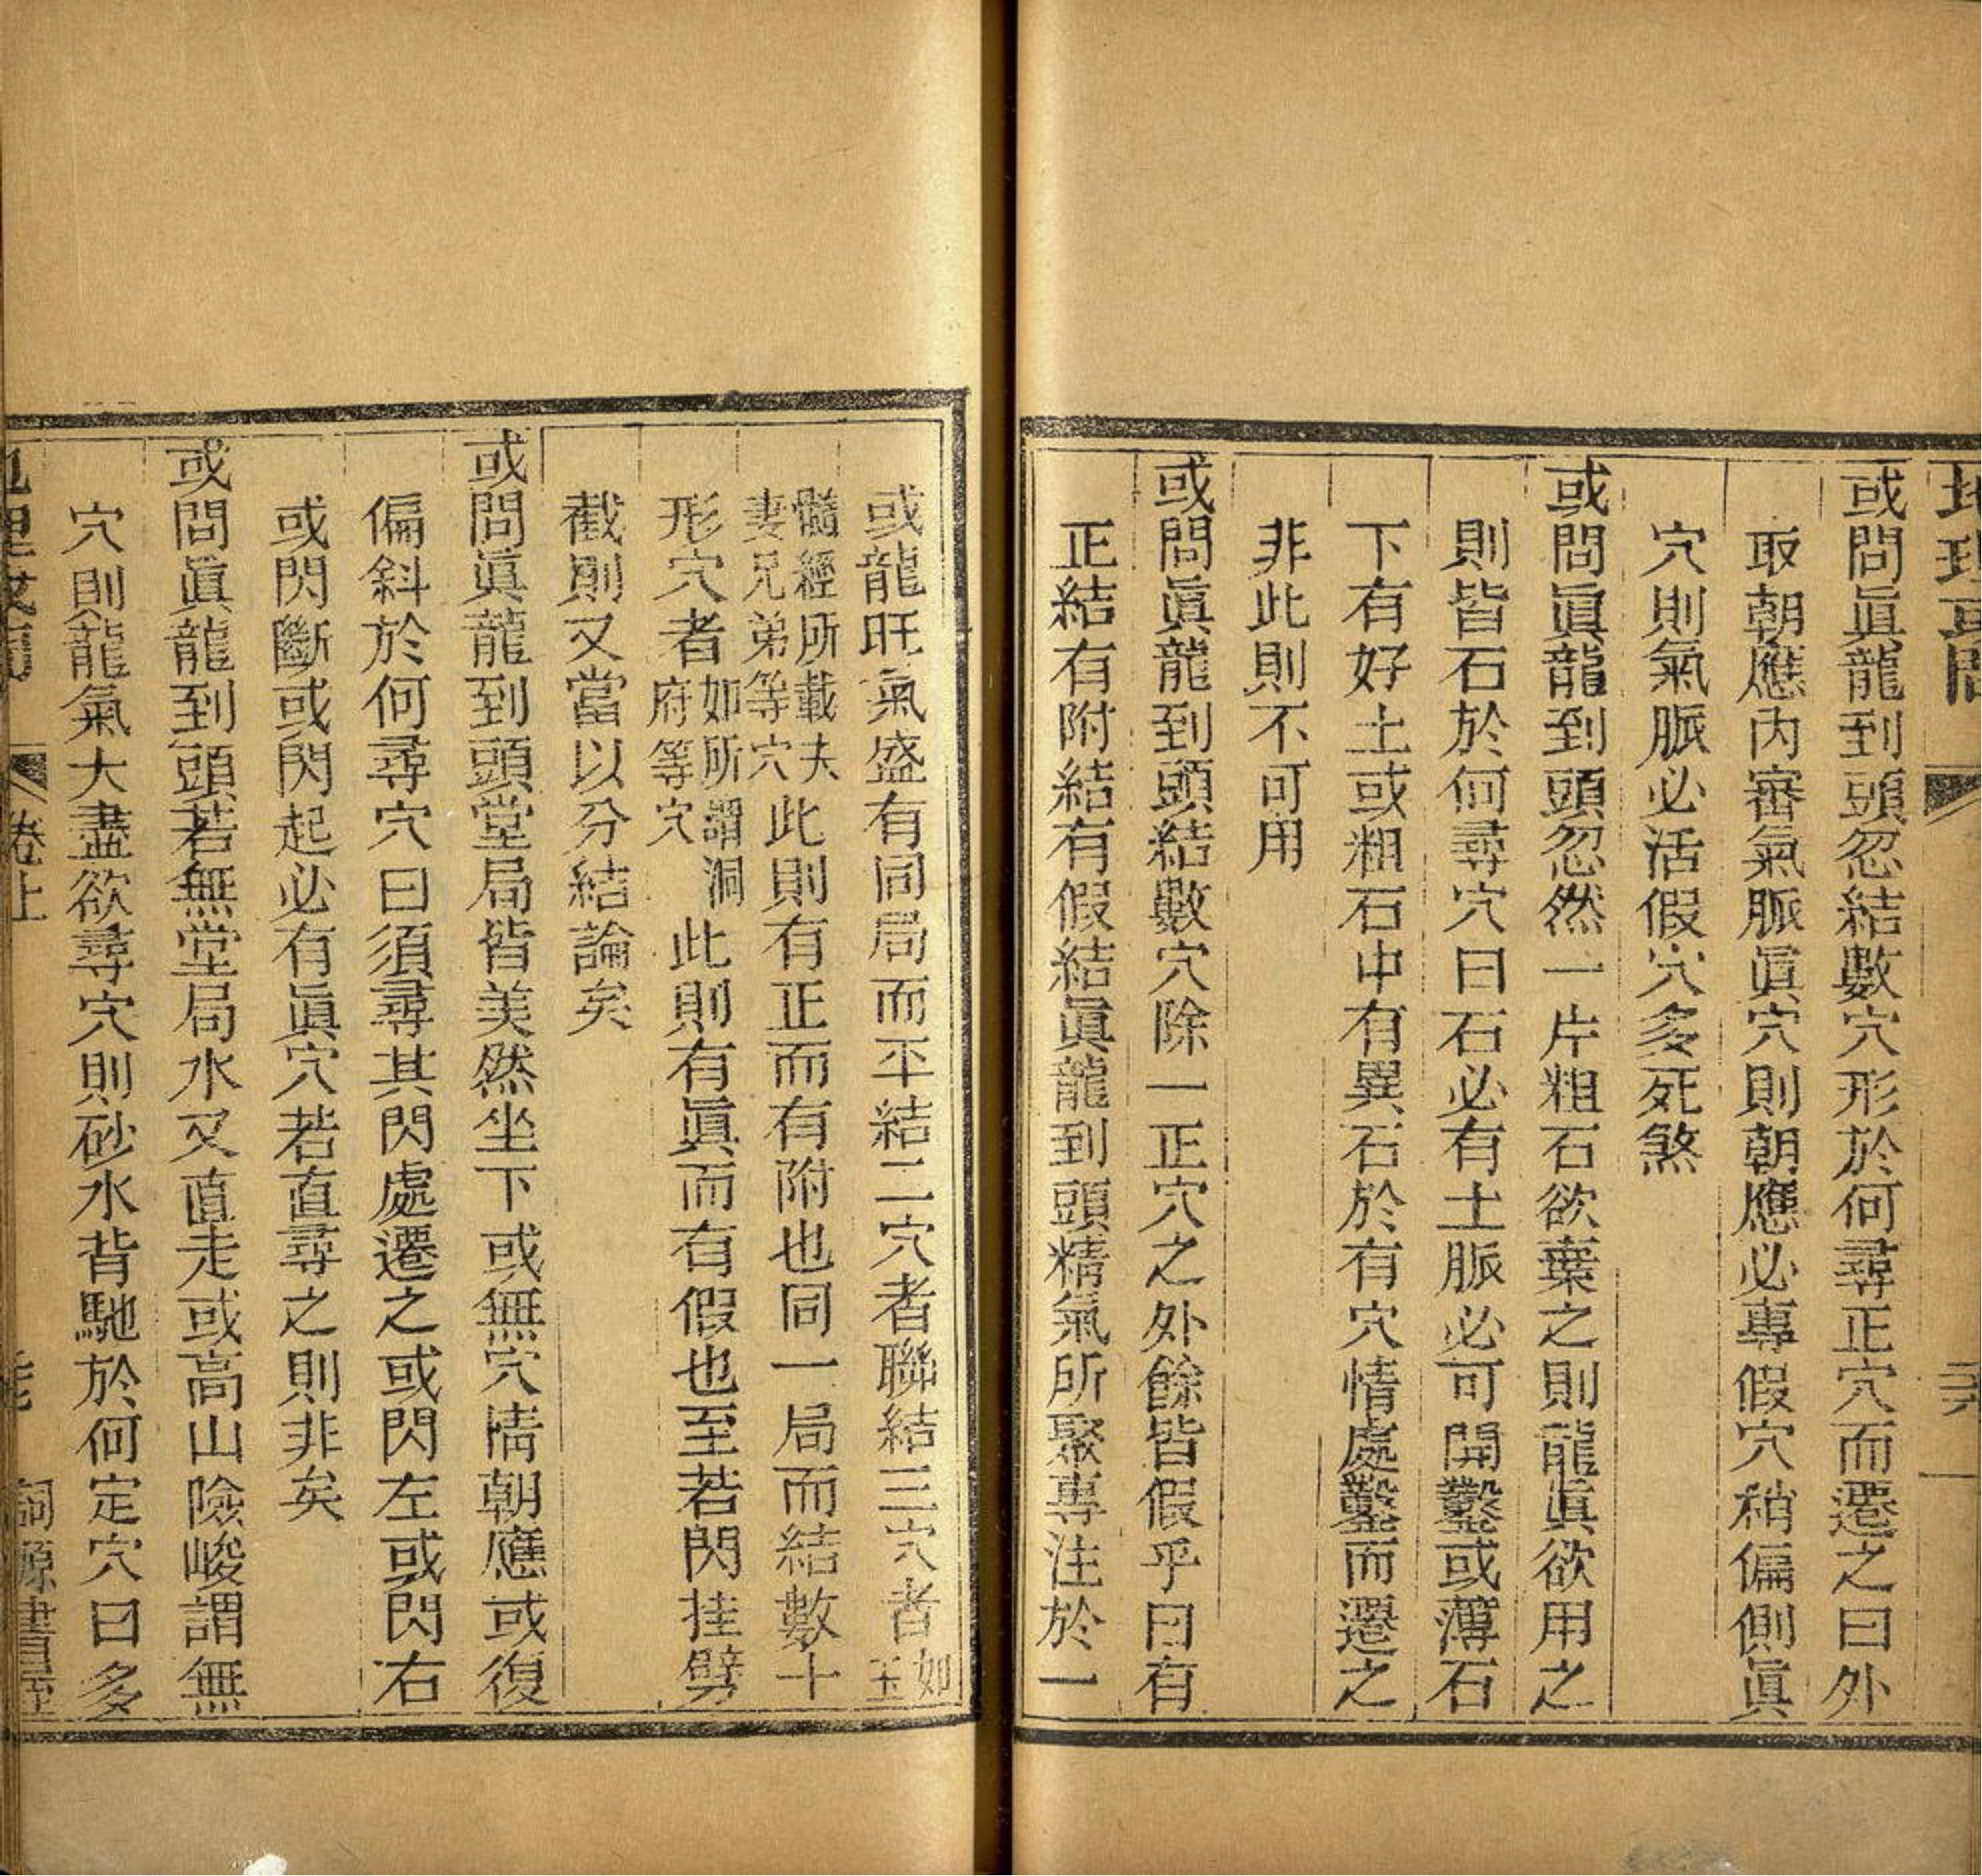 或問眞龍到頭忽結數穴形於何尋正穴而遷之曰外
取朝應內審氣脈眞穴則朝應必專假穴稍偏側眞
穴則氣脈必活假穴多死煞
或問眞龍到頭忽然一片粗石欲葉之則龍眞欲用之
則皆石於何尋穴曰石必有土脈必可開鑿或薄石
下有好土或粗石中有異石於有穴情處鑿而遷之
非此則不可用
或問眞龍到頭結數穴除一正穴之外餘皆假乎曰有
正結有附結有假結眞龍到頭精氣所聚專注於一
或龍旺氣盛有同局而平結二穴者聯結三穴者如玉
髓經所載夫妻兄弟等穴此則有正而有附也同一局而結數十
形穴者如所謂洞府等穴此則有眞而有假也至若閃挂劈
截則又當以分結論矣
或問眞龍到頭堂局皆美然坐下或無穴情朝應或復
偏斜於何尋穴曰須尋其閃處遷之或閃左或閃右
或閃斷或閃起必有眞穴若直尋之則非矣
或問眞龍到頭若無堂局水又直走或高山險峻謂無
穴則龍氣大盡欲尋穴則砂水背馳於何定穴曰多
卷上